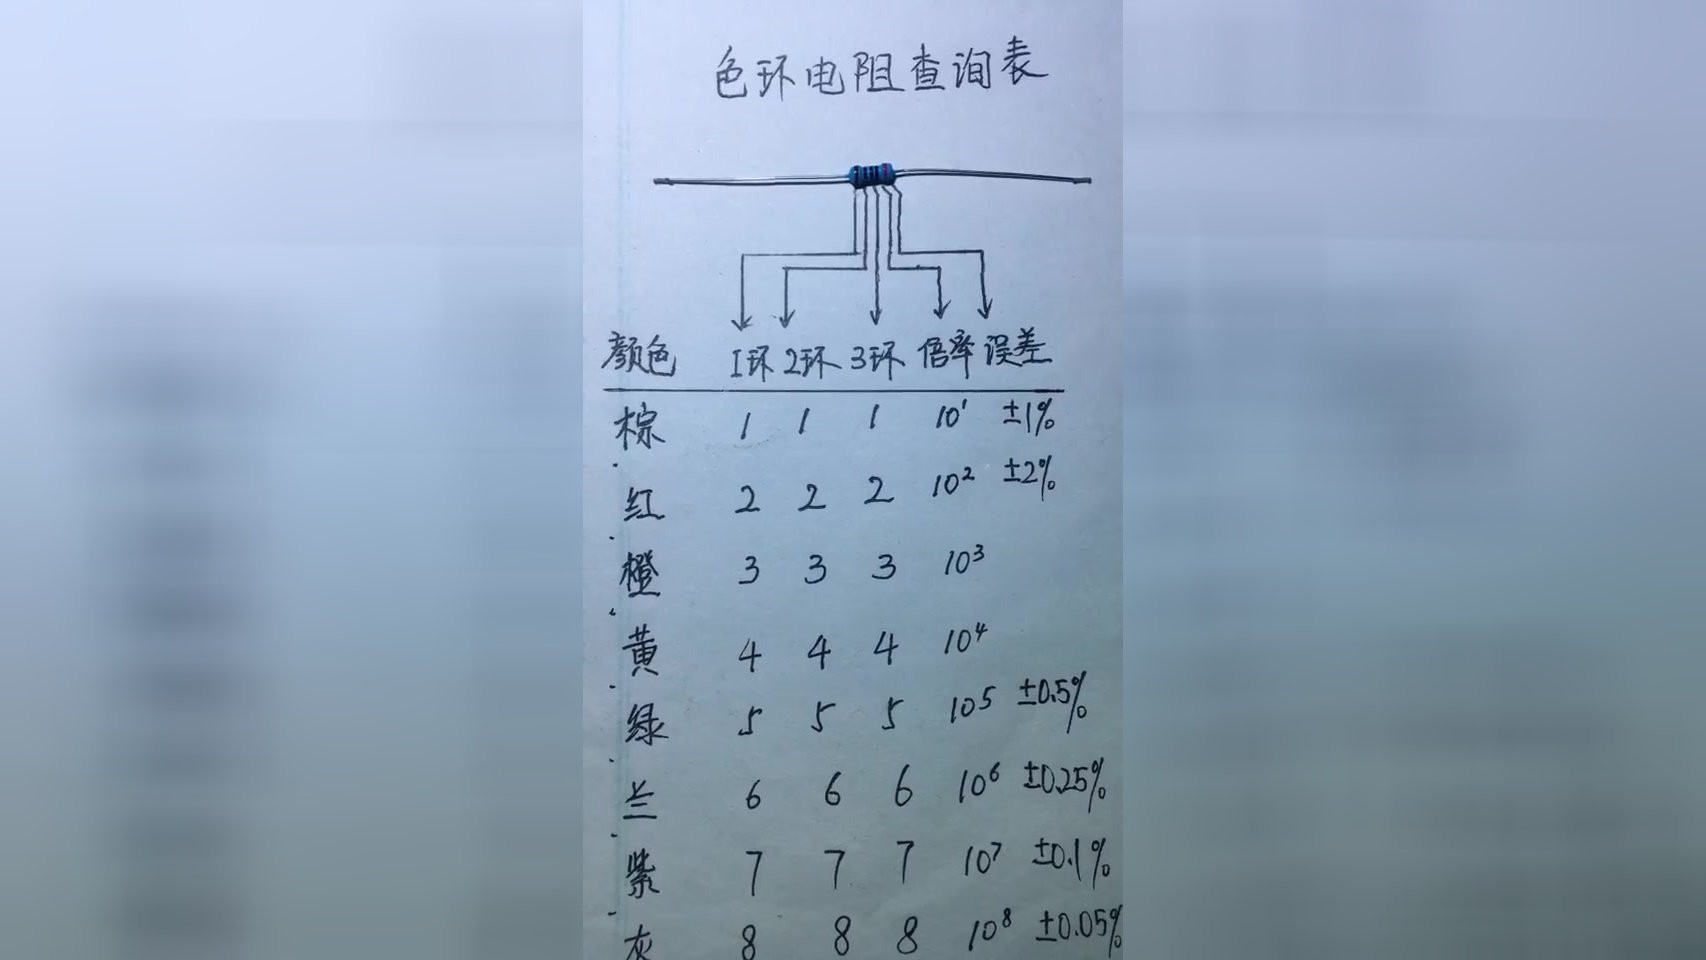 色环电阻查询表
颜色 1环 2环 3环 倍率 误差
棕 1 1 1 10¹ ±1%
红 2 2 2 10² ±2%
橙 3 3 3 10³
黄 4 4 4 10⁴
绿 5 5 5 10⁵ ±0.5%
兰 6 6 6 10⁶ ±0.25%
紫 7 7 7 10⁷ ±0.1%
灰 8 8 8 10⁸ ±0.05%